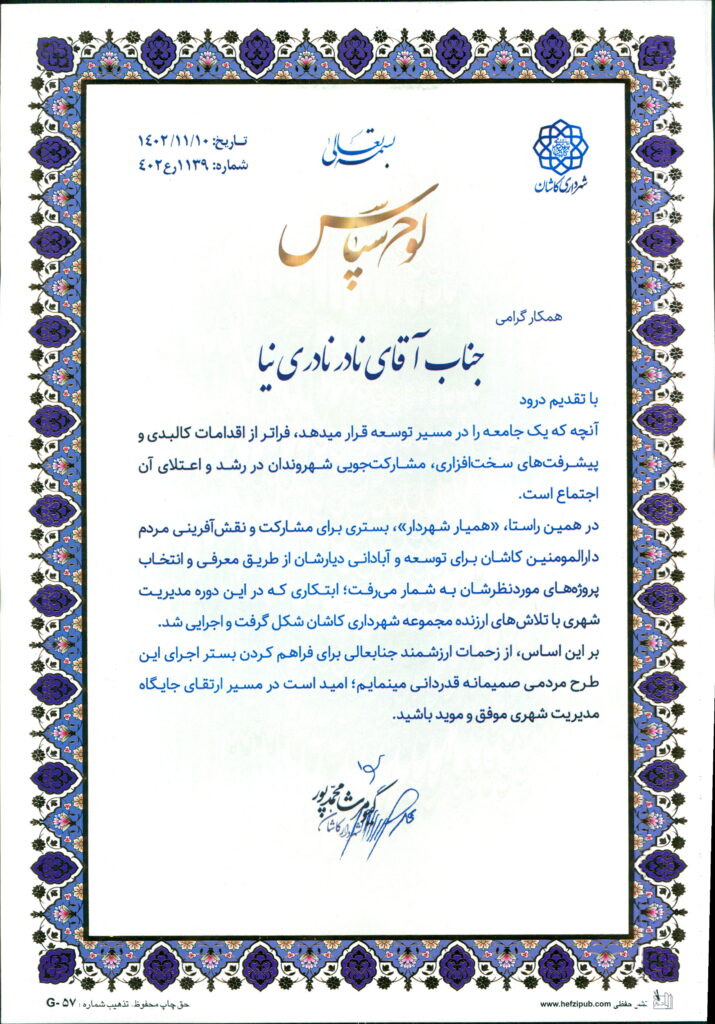 بسمه تعالی
شهرداری کاشان
تاریخ: ۱۴۰۲/۱۱/۱۰
شماره: ۱۱۳۹رع۴۰۲
لوح سپاس
همکار گرامی
جناب آقای نادر نادری نیا
با تقدیم درود
آنچه که یک جامعه را در مسیر توسعه قرار میدهد، فراتر از اقدامات کالبدی و
پیشرفت‌های سخت‌افزاری، مشارکت‌جویی شهروندان در رشد و اعتلای آن
اجتماع است.
در همین راستا، «همیار شهردار»، بستری برای مشارکت و نقش‌آفرینی مردم
دارالمومنین کاشان برای توسعه و آبادانی دیارشان از طریق معرفی و انتخاب
پروژه‌های موردنظرشان به شمار می‌رفت؛ ابتکاری که در این دوره مدیریت
شهری با تلاش‌های ارزنده مجموعه شهرداری کاشان شکل گرفت و اجرایی شد.
بر این اساس، از زحمات ارزشمند جنابعالی برای فراهم کردن بستر اجرای این
طرح مردمی صمیمانه قدردانی مینمایم؛ امید است در مسیر ارتقای جایگاه
مدیریت شهری موفق و موید باشید.
محمدپور
شهردار کاشان
نشر حفظی www.hefzipub.com
حق چاپ محفوظ. تذهیب شماره : G-۵۷